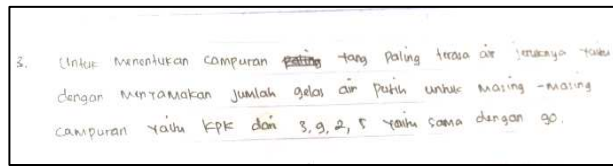 3. Untuk menentukan campuran yang paling terasa air jeruknya yaitu
dengan menyamakan jumlah gelas air putih untuk masing-masing
campuran yaitu KPK dari 3, 9, 2, 5 yaitu sama dengan 90.